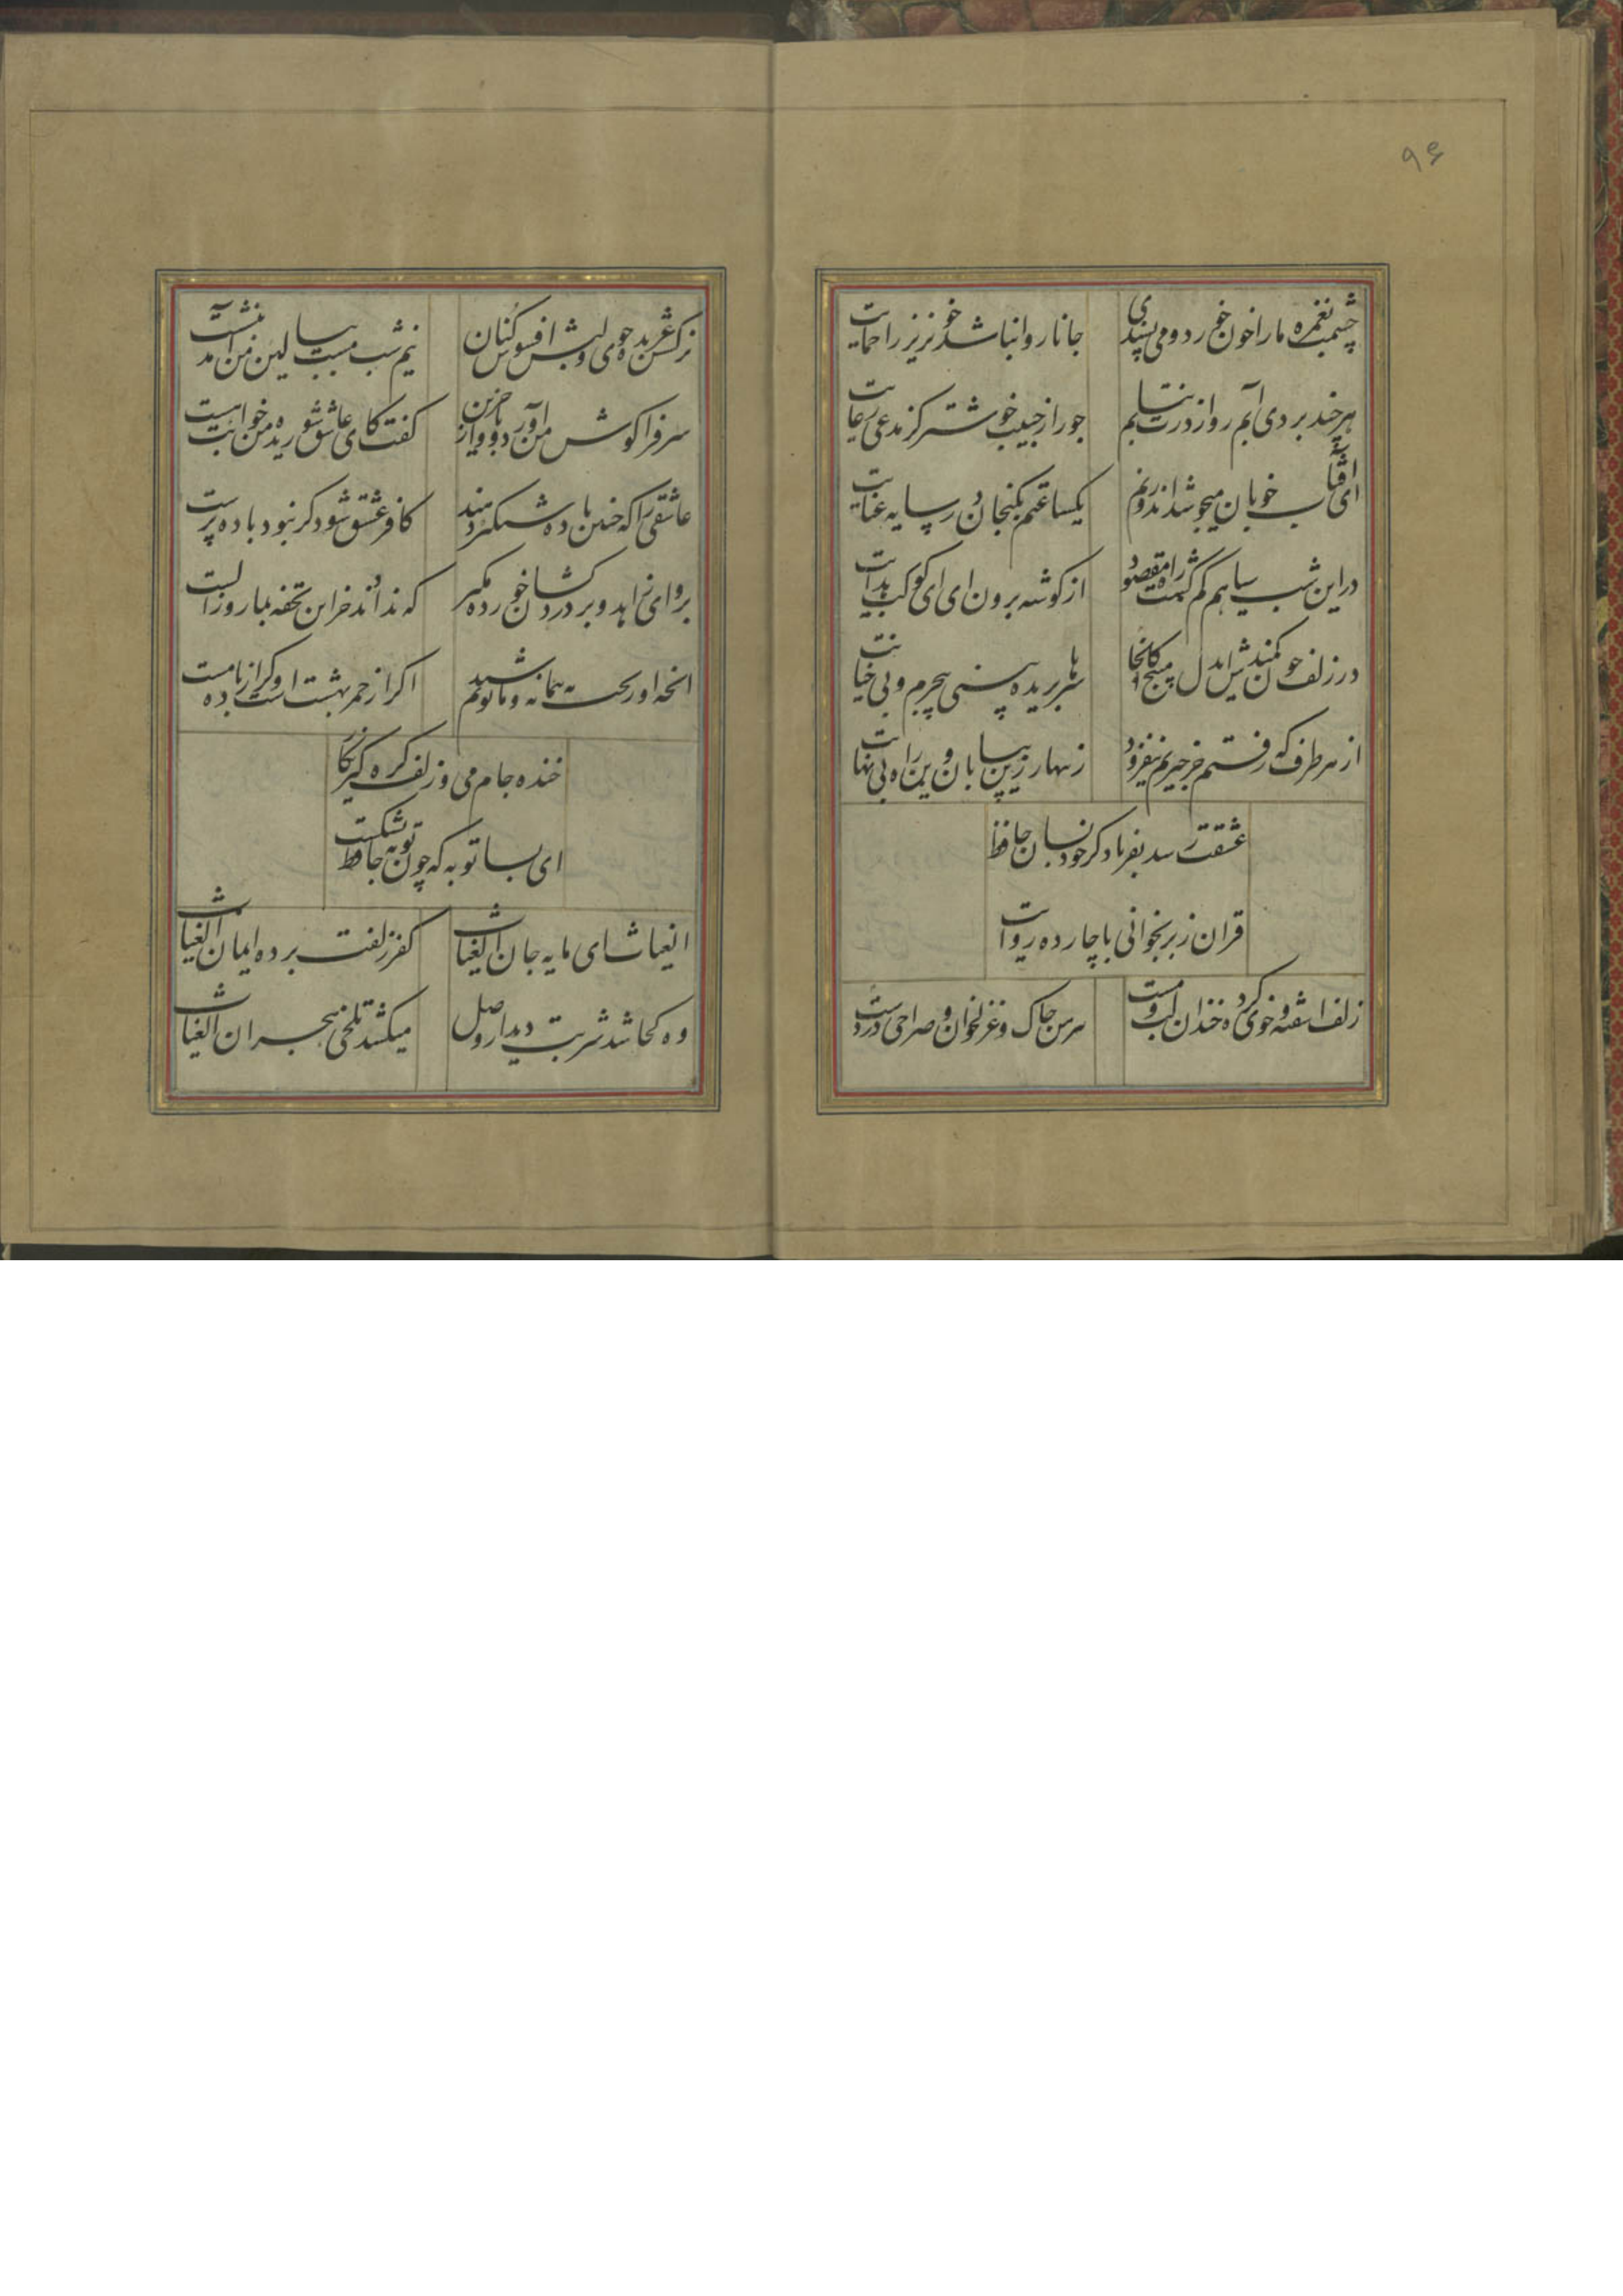 ۹۶
چشمت بغمزه ما را خون خورد و می پسندی
جانا روا نباشد خونریز را حمایت
هر چند بردی آبم رو از درت نتابم
جور از حبیب خوشتر کز مدعی رعایت
ای آفتاب خوبان میجوشد اندرونم
یکساعتم بکنجان در سایه عنایت
در این شب سیاهم گم گشت راه مقصود
از گوشه برون ای ای کوکب هدایت
در زلف چون کمندش ایدل مپیچ کانجا
سرها بریده بینی بیجرم و بی جنایت
از هر طرف که رفتم جز حیرتم نیفزود
زنهار ازین بیابان وین راه بی نهایت
عشقت رسد بفریاد گر خود بسان حافظ
قران ز بر بخوانی با چارده روایت
زلف اشفته و خوی کرده و خندان لب و مست
پیرهن چاک و غزلخوان و صراحی در دست
نرگسش عربده جوی و لبش افسوس کنان
نیم شب مست ببالین من آمد بنشست
سر فرا گوش من آورد و بآواز حزین
گفت کای عاشق شوریده من خوابت هست
عاشقی را که چنین باده شبگیر دهند
کافر عشق شود گر نبود باده پرست
برو ای زاهد و بر دردکشان خورده مگیر
که ندادند جز این تحفه بما روز الست
انچه او ریخت به پیمانه ما نوشیدیم
اگر از خمر بهشت است و گر از باده مست
خنده جام می و زلف گره گیر نگار
ای بسا توبه که چون توبه حافظ بشکست
الغیاث ای مایه جان الغیاث
کفر زلفت برده ایمان الغیاث
وه کجا شد شربت دیدار وصل
میکشد تلخی هجران الغیاث